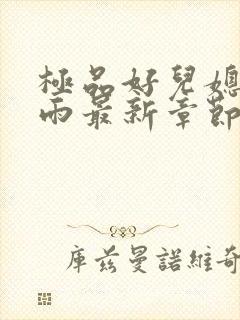 極品好兒媳
雨最新章節
庫茲曼諾維奇